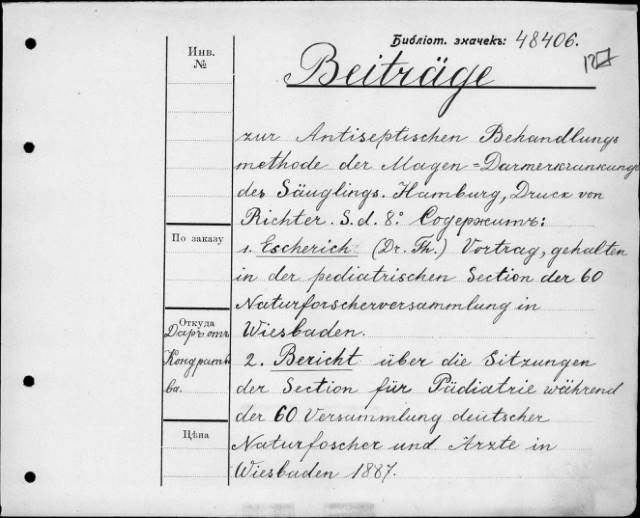 Библіот. значекъ: 48406.
Инв.
№
Beiträge
zur Antiseptischen Behandlungs
methode der Magen=Darmerkrankungen
des Säuglings. Hamburg, Druck von
Richter. S. d. 8:° Содержитъ:
По заказу
1. Escherich (Dr. Th.) Vortrag, gehalten
in der pediatrischen Section der 60
Naturforscherversammlung in
Откуда
Даръ отъ
Wiesbaden.
Кондратье
ва.
2. Bericht über die Sitzungen
der Section für Pädiatrie während
der 60 Versammlung deutscher
Цѣна
Naturfoscher und Ärzte in
Wiesbaden 1887.